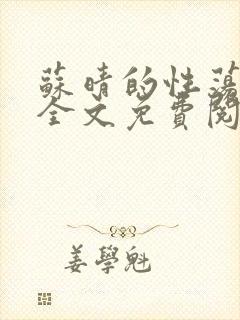 蘇晴的性蕩
全文免費閱
姜學魁